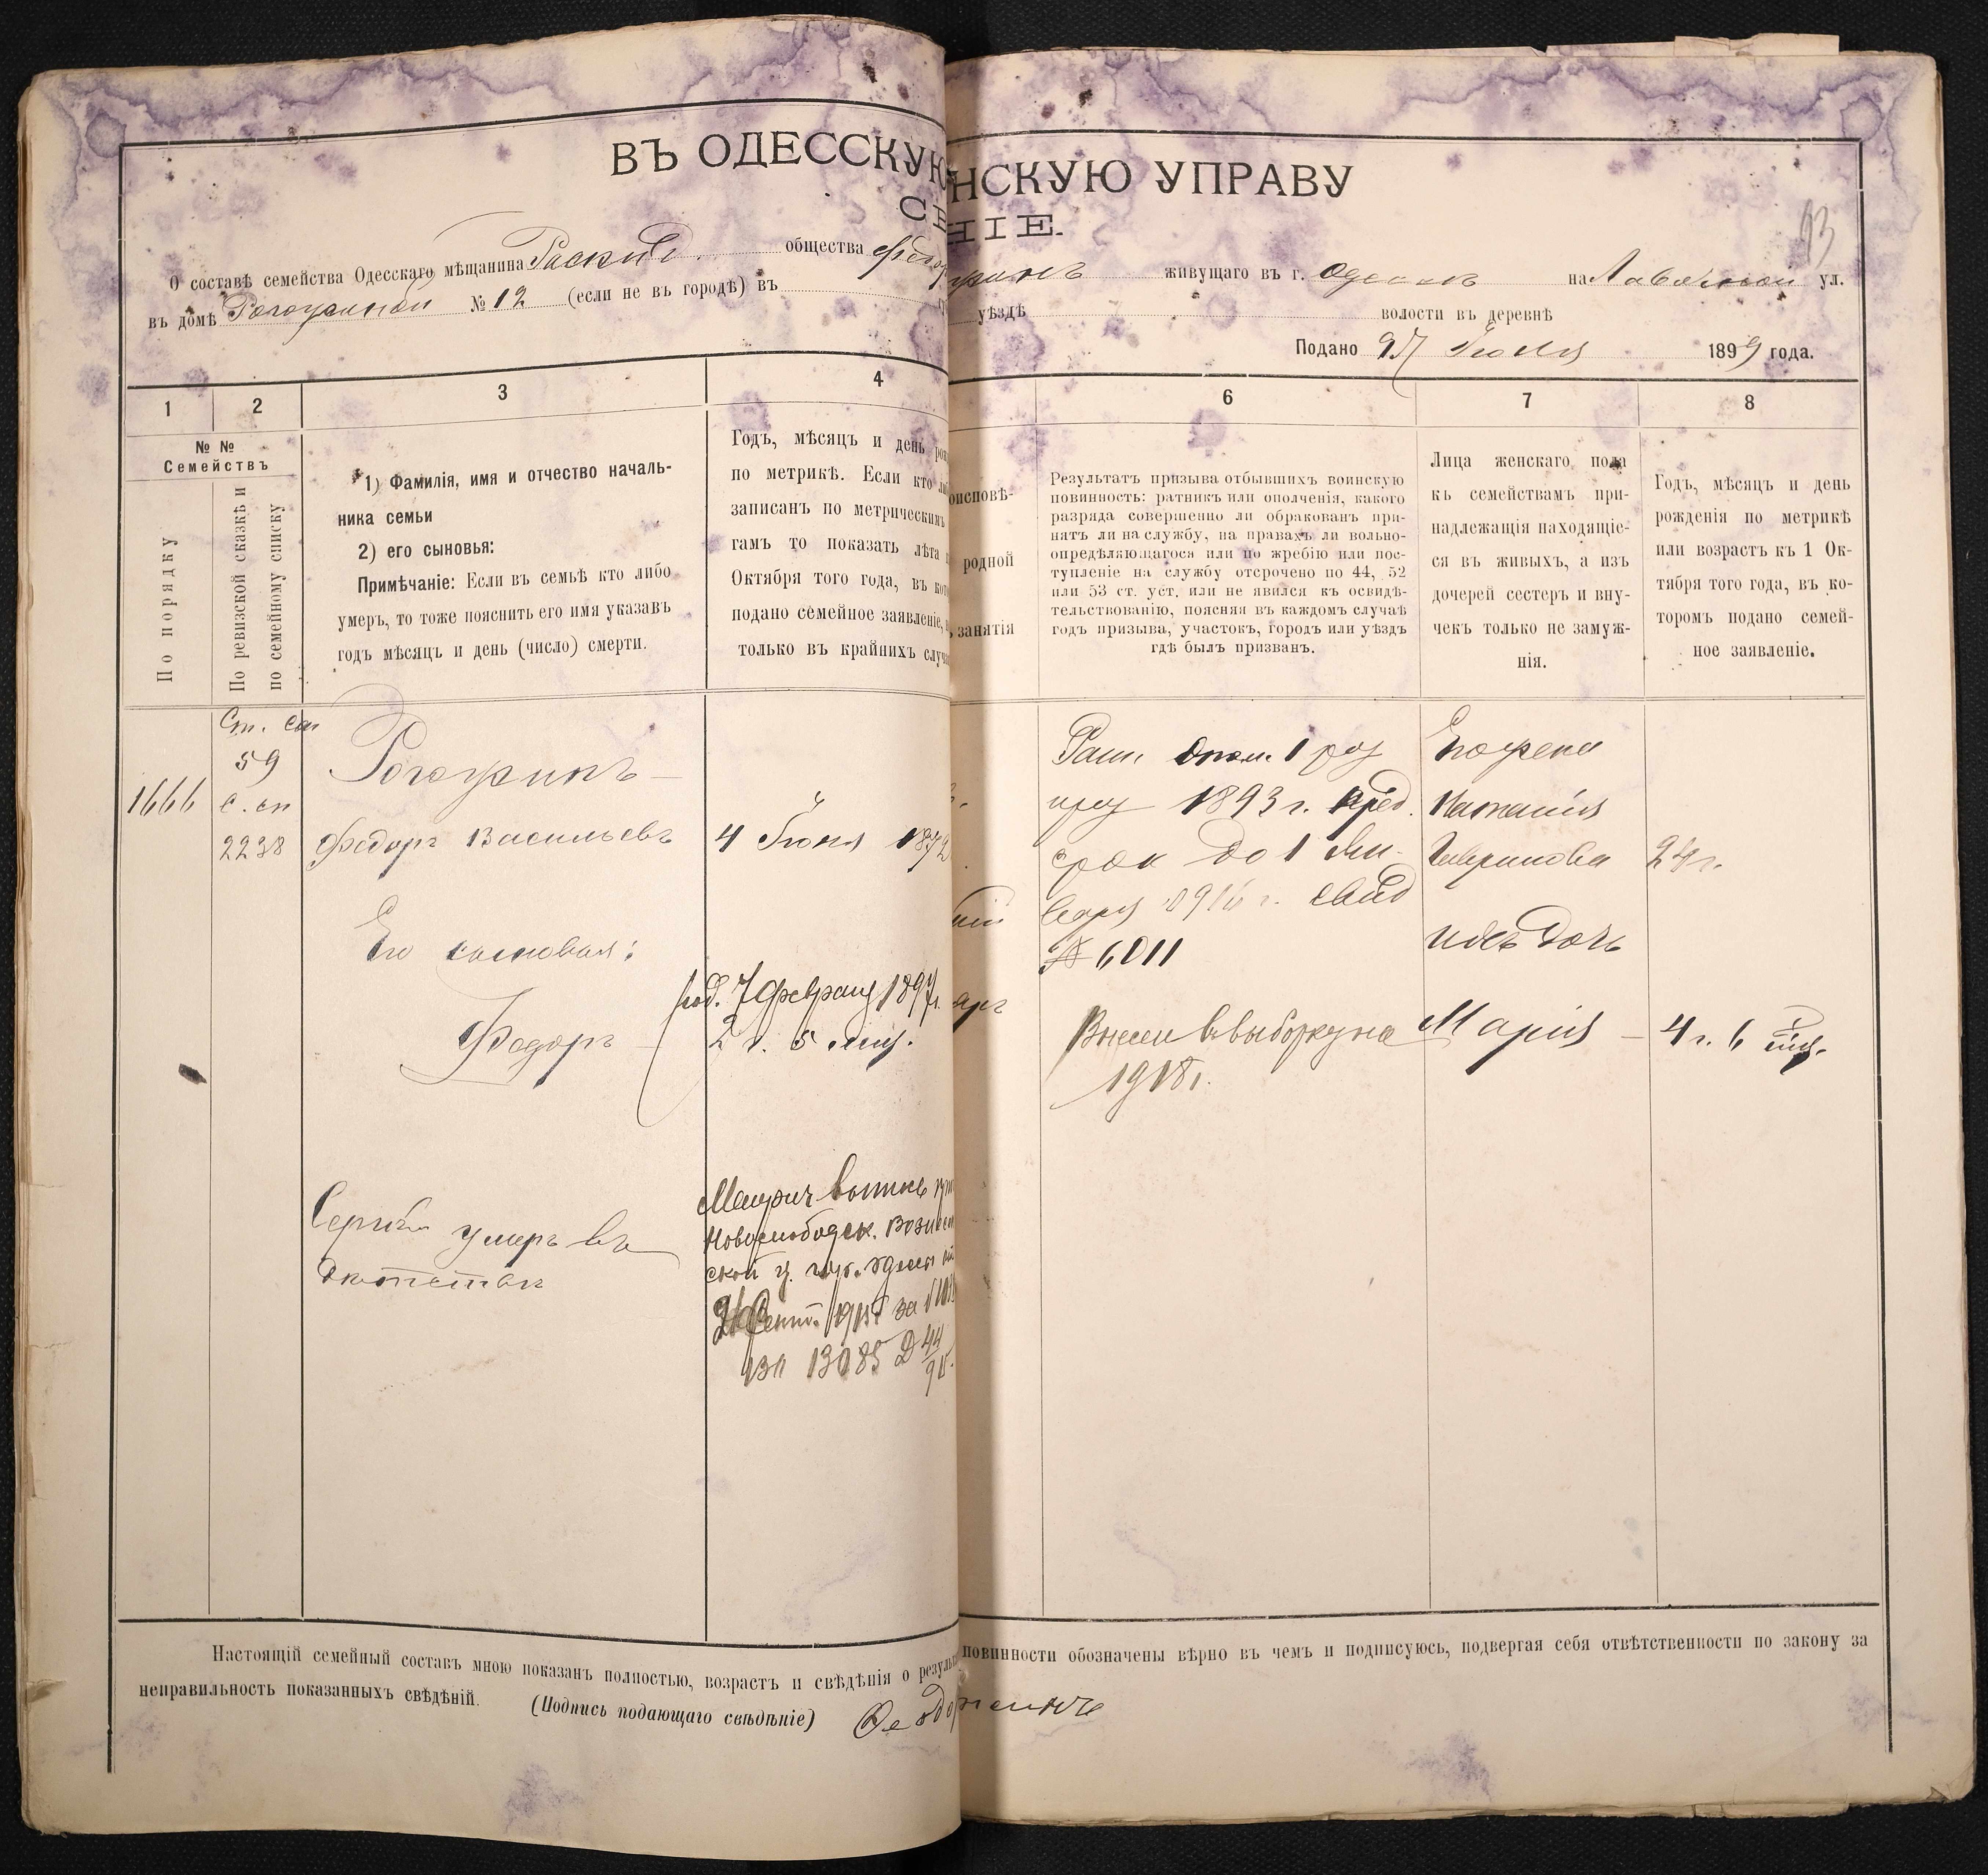 ВЪ ОДЕССКУЮ
НСКУЮ УПРАВУ
НІЕ.
93
О составѣ семейства Одесскаго мѣщанина Раскид. общества
живущаго въ г. Одессѣ на ул.
въ домѣ № 12 (если не въ городѣ) въ
уѣздѣ волости въ деревнѣ
Подано 27 Іюня 1899 года.
1 2 3 4 6 7 8
№ №
Семействъ
По порядку
По ревизской сказкѣ и
по семейному списку
1) Фамилія, имя и отчество началь-
ника семьи
2) его сыновья:
Примѣчаніе: Если въ семьѣ кто либо
умеръ, то тоже пояснить его имя указавъ
годъ мѣсяцъ и день (число) смерти.
Годъ, мѣсяцъ и день
по метрикѣ. Если кто
записанъ по метрическимъ
гамъ то показать лѣта
Октября того года, въ
подано семейное заявленіе,
только въ крайнихъ
оисповѣ-
родной
занятія
Результатъ призыва отбывшихъ воинскую
повинность: ратникъ или ополченія, какого
разряда совершенно ли обракованъ при-
нятъ ли на службу, на правахъ ли вольно-
опредѣляющагося или по жребію или пос-
тупленіе на службу отсрочено по 44, 52
или 53 ст. уст. или не явился къ освидѣ-
тельствованію, поясняя въ каждомъ случаѣ
годъ призыва, участокъ, городъ или уѣздъ
гдѣ былъ призванъ.
Лица женскаго пола
къ семействамъ при-
надлежащія находящіе-
ся въ живыхъ, а изъ
дочерей сестеръ и вну-
чекъ только не замуж-
нія.
Годъ, мѣсяцъ и день
рожденія по метрикѣ
или возрастъ къ 1 Ок-
тября того года, въ ко-
торомъ подано семей-
ное заявленіе.
1666
Ст. сп
59
с. сп
2238
Федоръ Васильевъ
4 Іюня 1872
Его сыновья:
Федоръ
род. 7 февраля 1897 г.
2 г. 5 мѣс.
Сергѣй умеръ въ
дѣтствѣ
Метрич выпись
Новослободск. Вознесен
ской ц. гор. Одессы
Сент. 1915 за №
13085
Рат. опол. 1 раз
приз 1893 г. пред.
срок до 1 Ян-
варя 1916 г. свид
№ 6011
Внесен в выборку на
1918 г.
Его жена
Наталія
Гаврилова 24 г.
ихъ дочь
Марія – 4 г. 6 мѣс.
Настоящій семейный составъ мною показанъ полностью, возрастъ и свѣдѣнія о
повинности обозначены вѣрно въ чемъ и подписуюсь, подвергая себя отвѣтственности по закону за
неправильность показанныхъ свѣдѣній. (Подпись подающаго свѣдѣніе)